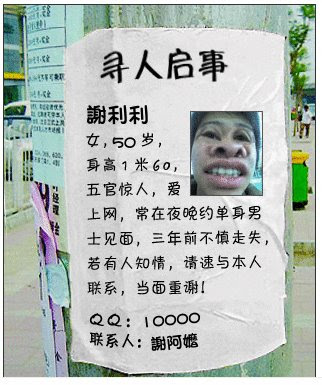 寻人启事
謝利利
女,50岁,
身高1米60,
五官惊人，爱
上网，常在夜晚约单身男
士见面，三年前不慎走失，
若有人知情，请速与本人
联系，当面重谢!
QQ：10000
联系人：謝阿嬷